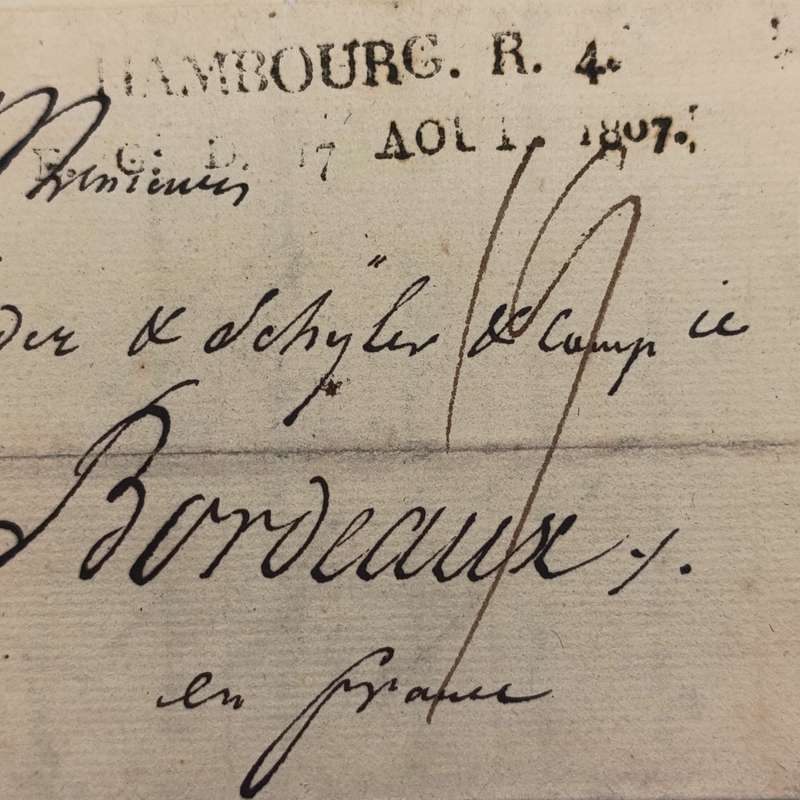 HAMBOURG. R. 4.
G. D. 17 AOUT. 1807.
Messieurs
der & Schÿler & Comp ie
Bordeaux ./.
en france